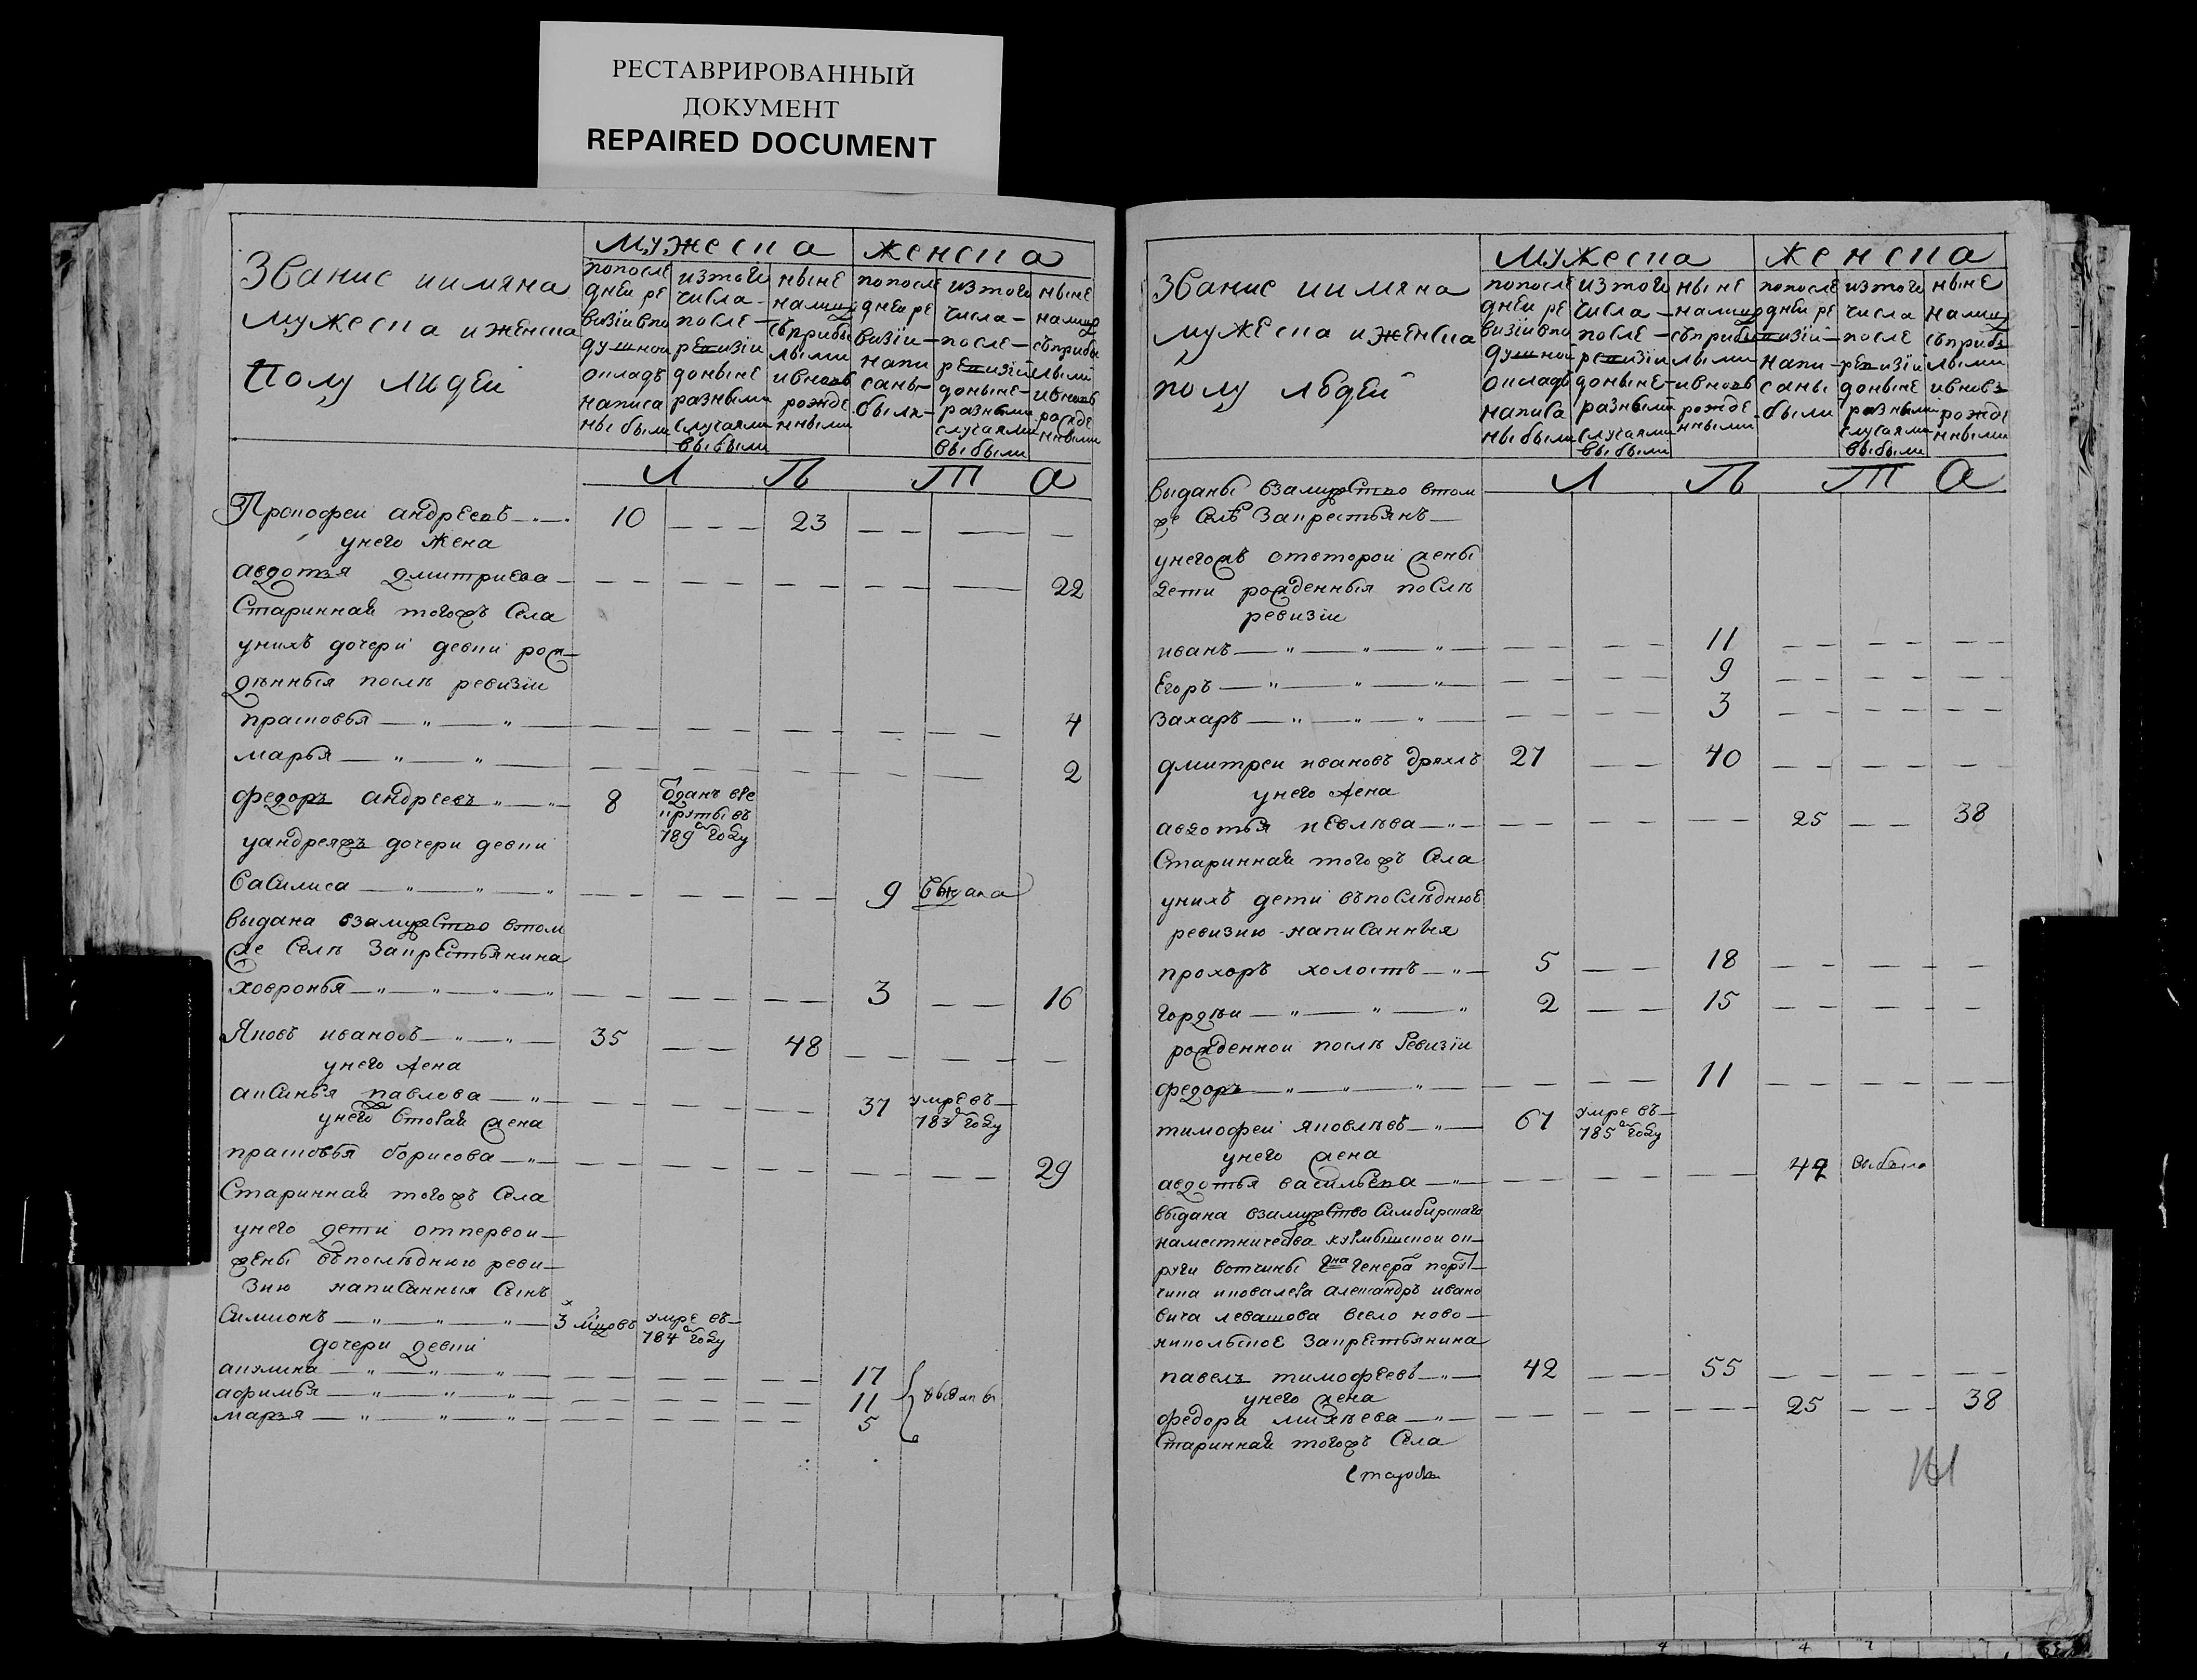 РЕСТАВРИРОВАННЫЙ
ДОКУМЕНТ
REPAIRED DOCUMENT
Звание иимяна
мужеска и женска
полу людей
мужеска женска
попосле
дней ре
визіи впо
душной
окладъ
написа
ны были
изтого
числа-
после-
ревизіи
доныне
разными
случаями
выбыли
ныне
налицо
съприбы
лыми
ивновь
рожде
нными
попосле
дней ре
визіи-
напи
саны-
были-
изтого
числа-
после-
ревизіи
доныне-
разными
случаями
выбыли
ныне
налицо
съприбы
лыми
ивновь
рожде
нными
Л Ѣ Т А
Прокофеи андреевъ 10 23
унего жена
авдотья дмитриева 22
Старинная тогожъ Села
унихъ дочери девки рож-
дѣнныя послѣ ревизіи
прасковья 4
марья 2
федоръ андреевъ 8 Отданъ вре
круты въ
789м году
уандреяжъ дочери девки
василиса 9 выдана
выдана взамужство втом
же Селѣ Закрестьянина
ховронья 3 16
Яковъ ивановъ 35 48
унего жена
аксинья павлова 37 умре въ
783м году
унего вторая жена
прасковья борисова 29
Старинная тогожъ Села
унего дети отпервой
жены въпослѣднюю реви-
зию написанныя Сынъ
Симионъ 3х мцовъ умре въ
784м году
дочери девки
акулина 17
афимья 11 выданы
марья 5
Звание иимяна
мужеска и женска
полу людей
мужеска женска
попосле
дней ре
визіи впо
душной
окладъ
написа
ны были
изтого
числа-
после-
ревизіи
доныне-
разными
случаями
выбыли
ныне
налицо
съприбы
лыми
ивновь
рожде
нными
попосле
дней ре
визіи-
напи-
саны
были
изтого
числа
после
ревизіи
доныне
разными
случаями
выбыли
ныне
налицо
съприбы
лыми
ивновь
рожде
нными
Л Ѣ Т А
выданы взамужство втом
же Селѣ Закрестьянъ
унегожъ отвторой жены
дети рожденныя послѣ
ревизіи
иванъ 11
Егоръ 9
Захаръ 3
дмитреи ивановъ дряхлъ 27 40
унего жена
авдотья иевлева 25 38
Старинная тогожъ Села
унихъ дети въпослѣднюю
ревизию написанныя
прохоръ холостъ 5 18
гордѣи 2 15
рожденнои послѣ Ревизіи
федоръ 11
тимофеи яковлевъ 67 умре въ
785м году
унего жена
авдотья васильева 49 выбыла
выдана взамужство Симбирскаго
наместничества курмышской ок-
руги вотчины гдна генерала пору-
чика икавалера александръ ивано
вича левашова всело ново-
никольское Закрестьянина
павелъ тимофеевъ 42 55
унего жена
федора михѣева 25 38
Старинная тогожъ Села
161